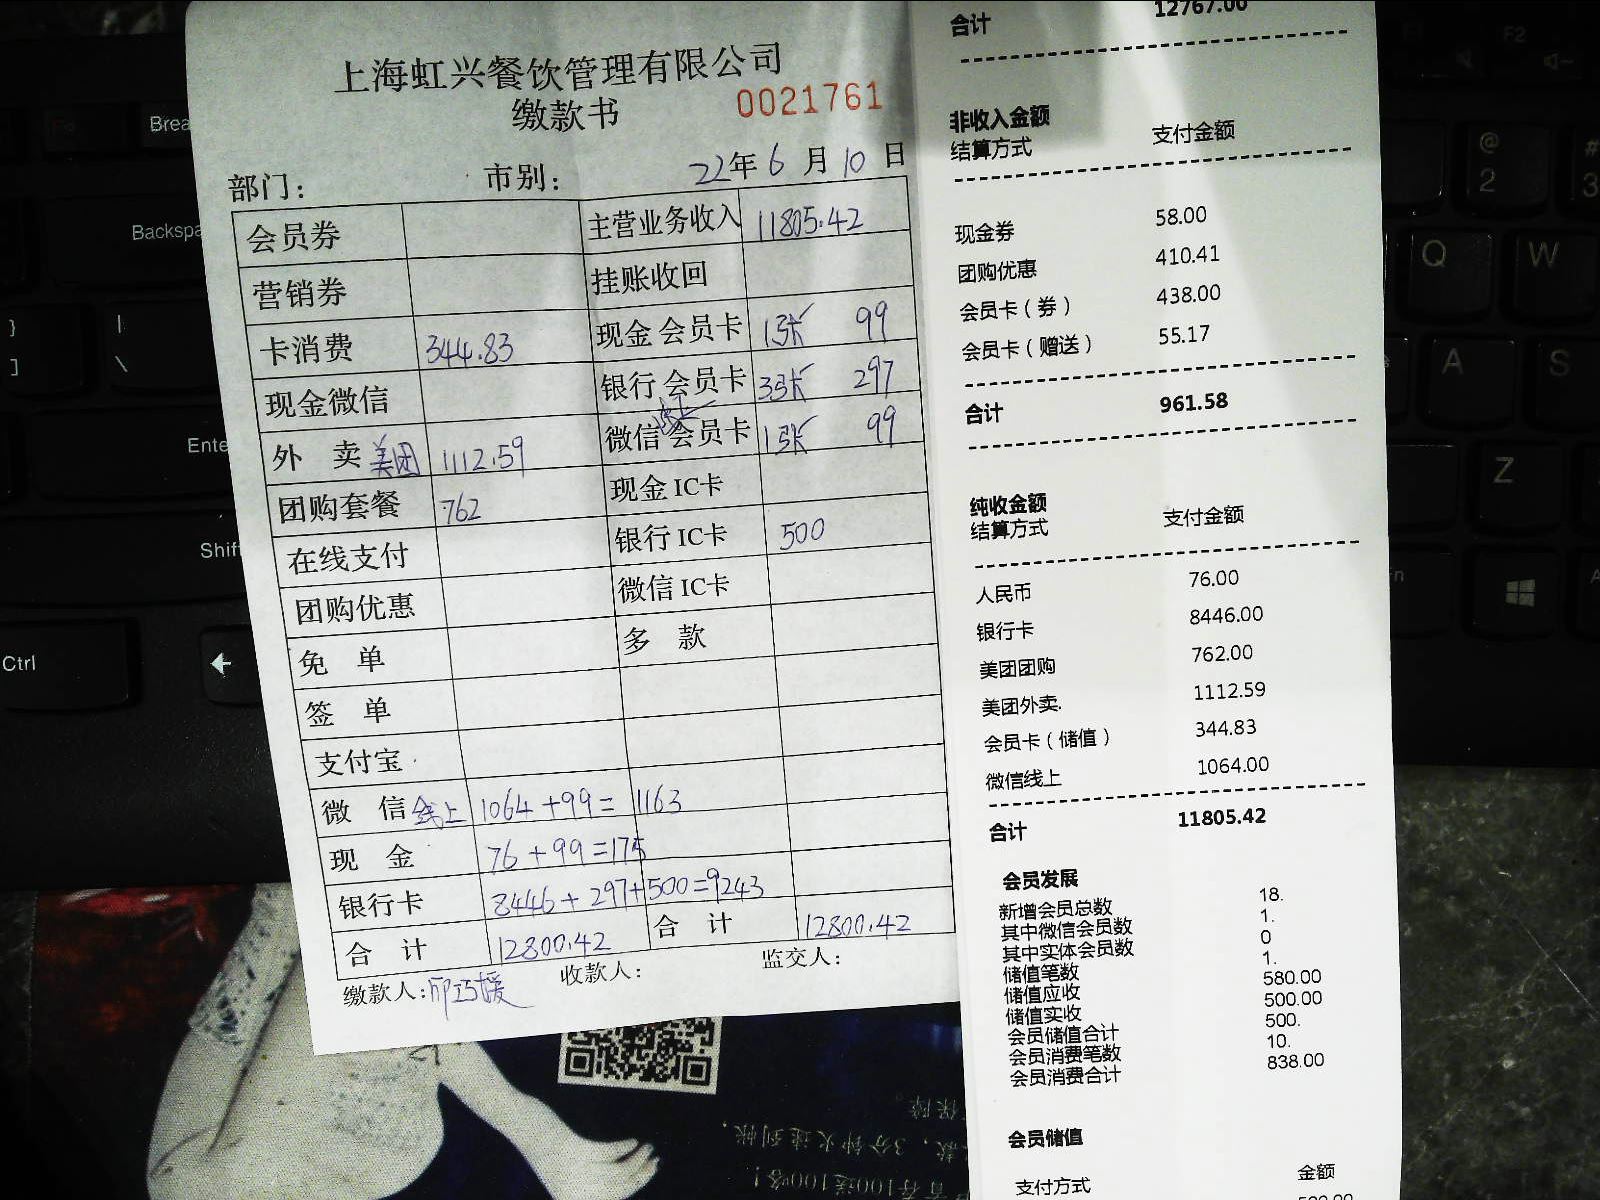 上海虹兴餐饮管理有限公司
缴款书
0021761
部门：
市别：
22年6月10日
会员券
主营业务收入 11805.42
营销券
挂账收回
卡消费 344.83
现金 会员卡 1张 99
现金微信
银行 会员卡 3张 297
外 卖 美团 1112.59
微信 会员卡 1张 99
团购套餐 762
现金 IC卡
在线支付
银行 IC卡 500
团购优惠
微信 IC卡
免 单
多 款
签 单
支付宝
微 信 线上 1064+99= 1163
现 金 76+99=175
银行卡 8446+297+500=9243
合 计 12800.42
合 计 12800.42
缴款人:
收款人:
监交人:
合计 12767.00
非收入金额
结算方式 支付金额
现金券 58.00
团购优惠 410.41
会员卡（券） 438.00
会员卡（赠送） 55.17
合计 961.58
纯收金额
结算方式 支付金额
人民币 76.00
银行卡 8446.00
美团团购 762.00
美团外卖. 1112.59
会员卡（储值） 344.83
微信线上 1064.00
合计 11805.42
会员发展
新增会员总数 18.
其中微信会员数 1.
其中实体会员数 0
储值笔数 1.
储值应收 580.00
储值实收 500.00
会员储值合计 500.
会员消费笔数 10.
会员消费合计 838.00
会员储值
支付方式 金额
Brea
Backspa
Ente
Shift
Ctrl
F2
@
2
#
3
Q
W
A
S
Z
}
]
|
\